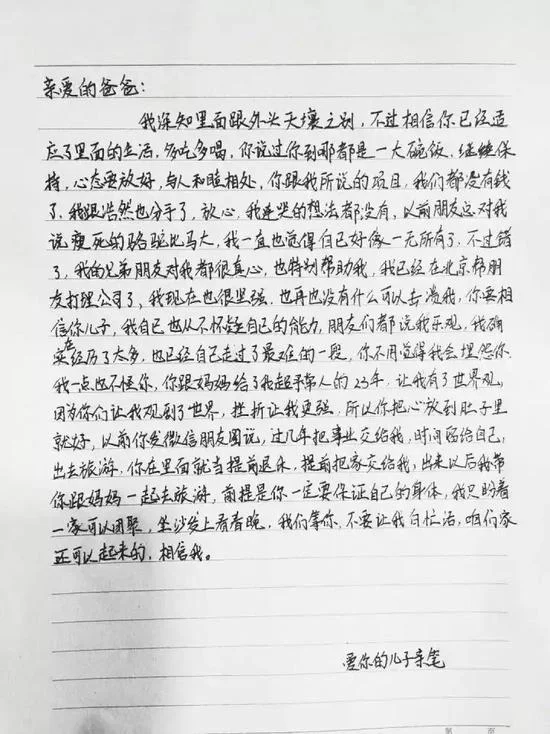 亲爱的爸爸：
我深知里面跟外头天壤之别，不过相信你已经适
应了里面的生活，多吃多喝，你说过你到哪都是一大碗饭，继继保
持，心态要放好，与人和睦相处，你跟我所说的项目，我们都没有钱
了，我跟浩然也分手了，放心，我连哭的想法都没有，以前朋友总对我
说瘦死的骆驼比马大，我一直也觉得自己好像一无所有了，不过错
了，我的兄弟朋友对我都很真心，也特别帮助我，我已经在北京帮朋
友打理公司了，我现在也很坚强，也再也没有什么可以击溃我，你要相
信你儿子，我自己也从不怀疑自己的能力，朋友们都说我乐观，我确
实经历了太多，也已经自己走过了最难的一段，你不用觉得我会埋怨你
我一点也不怪你，你跟妈妈给了我超乎常人的23年，让我有了世界观，
因为你们让我观到了世界，挫折让我更强，所以你把心放到肚子里
就好，以前你发微信朋友圈说，过几年把事业交给我，时间留给自己，
出去旅游，你在里面就当提前退休，提前把家交给我，出来以后我带
你跟妈妈一起去旅游，前提是你一定要保证自己的身体，我只盼着
一家可以团聚，坐沙发上看春晚，我们等你，不要让我白忙活，咱们家
还可以起来的，相信我。
爱你的儿子亲笔
第 页